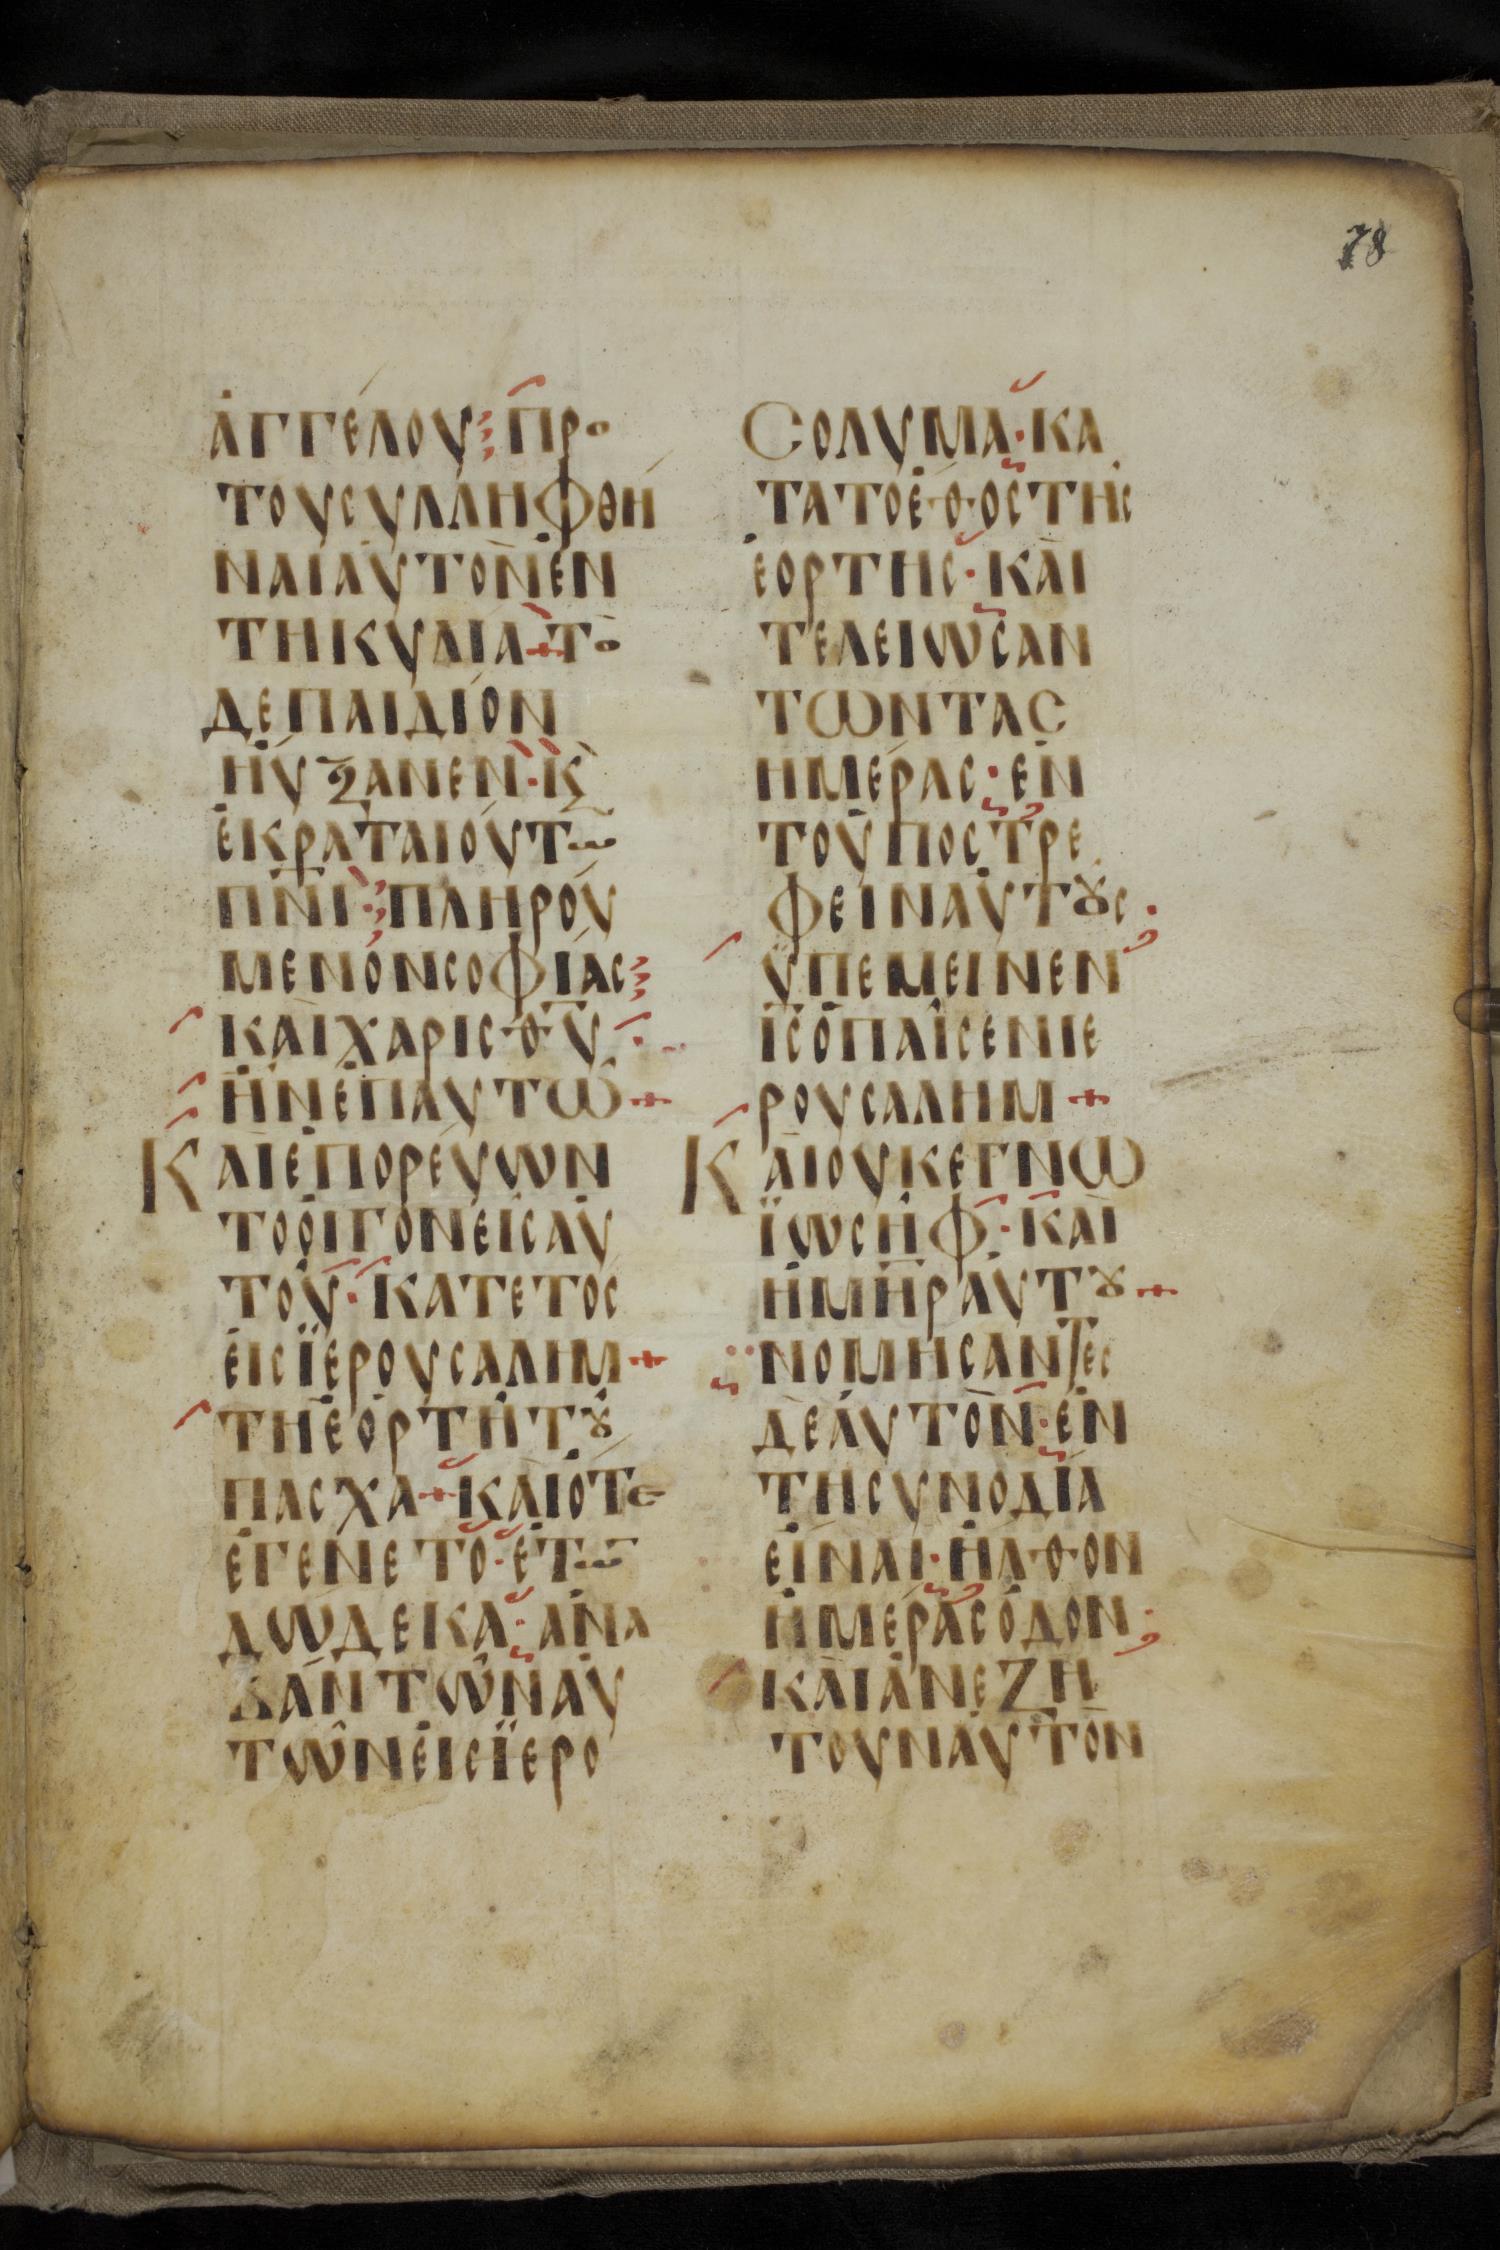 78
ἀγγέλου· προ
τουσυλληφθη
ναιαυτὸνἐν
τηκυλία+το
δεπαιδίον
ηὐξανεν·κ̀
ἐκραταιοῦτω
πν̅ι·πληρού
μενονσοφίας
καὶχαρισθ̅υ·
ἠνἐπαυτῶ+
Καὶἐπορεύων
τοοἱγονεῖσαυ
τοῦ·κατετος
ἐισϊερουσαλημ+
τηἑορτῆτȣ͂
πασχα+καὶὅτε
ἐγενετο·ἐτῶ
δώδεκα·ἀνα
βάντῶναυ
τῶνἐισϊερο
σολυμα·κα
τατοἔθοςτῆς
ἑορτης·καὶ
τελειωσαν
τωντας
ημέρας·ἐν
τοὑποστρε
φεινἀυτȣς·
ϋπεμεινεν
ϊς̅ὁπαῖςενϊε
ρουσαλημ+
Καὶουκεγνω
ϊωσὴφ·καὶ
ἡμη̅ραὐτȣ+
νομησαντες
δεἀυτὸν·ἐν
τησυνοδία
εἶναι·ἦλθον
ἡμέραςὁδον·
καὶἀνεζη
τουναὐτὸν